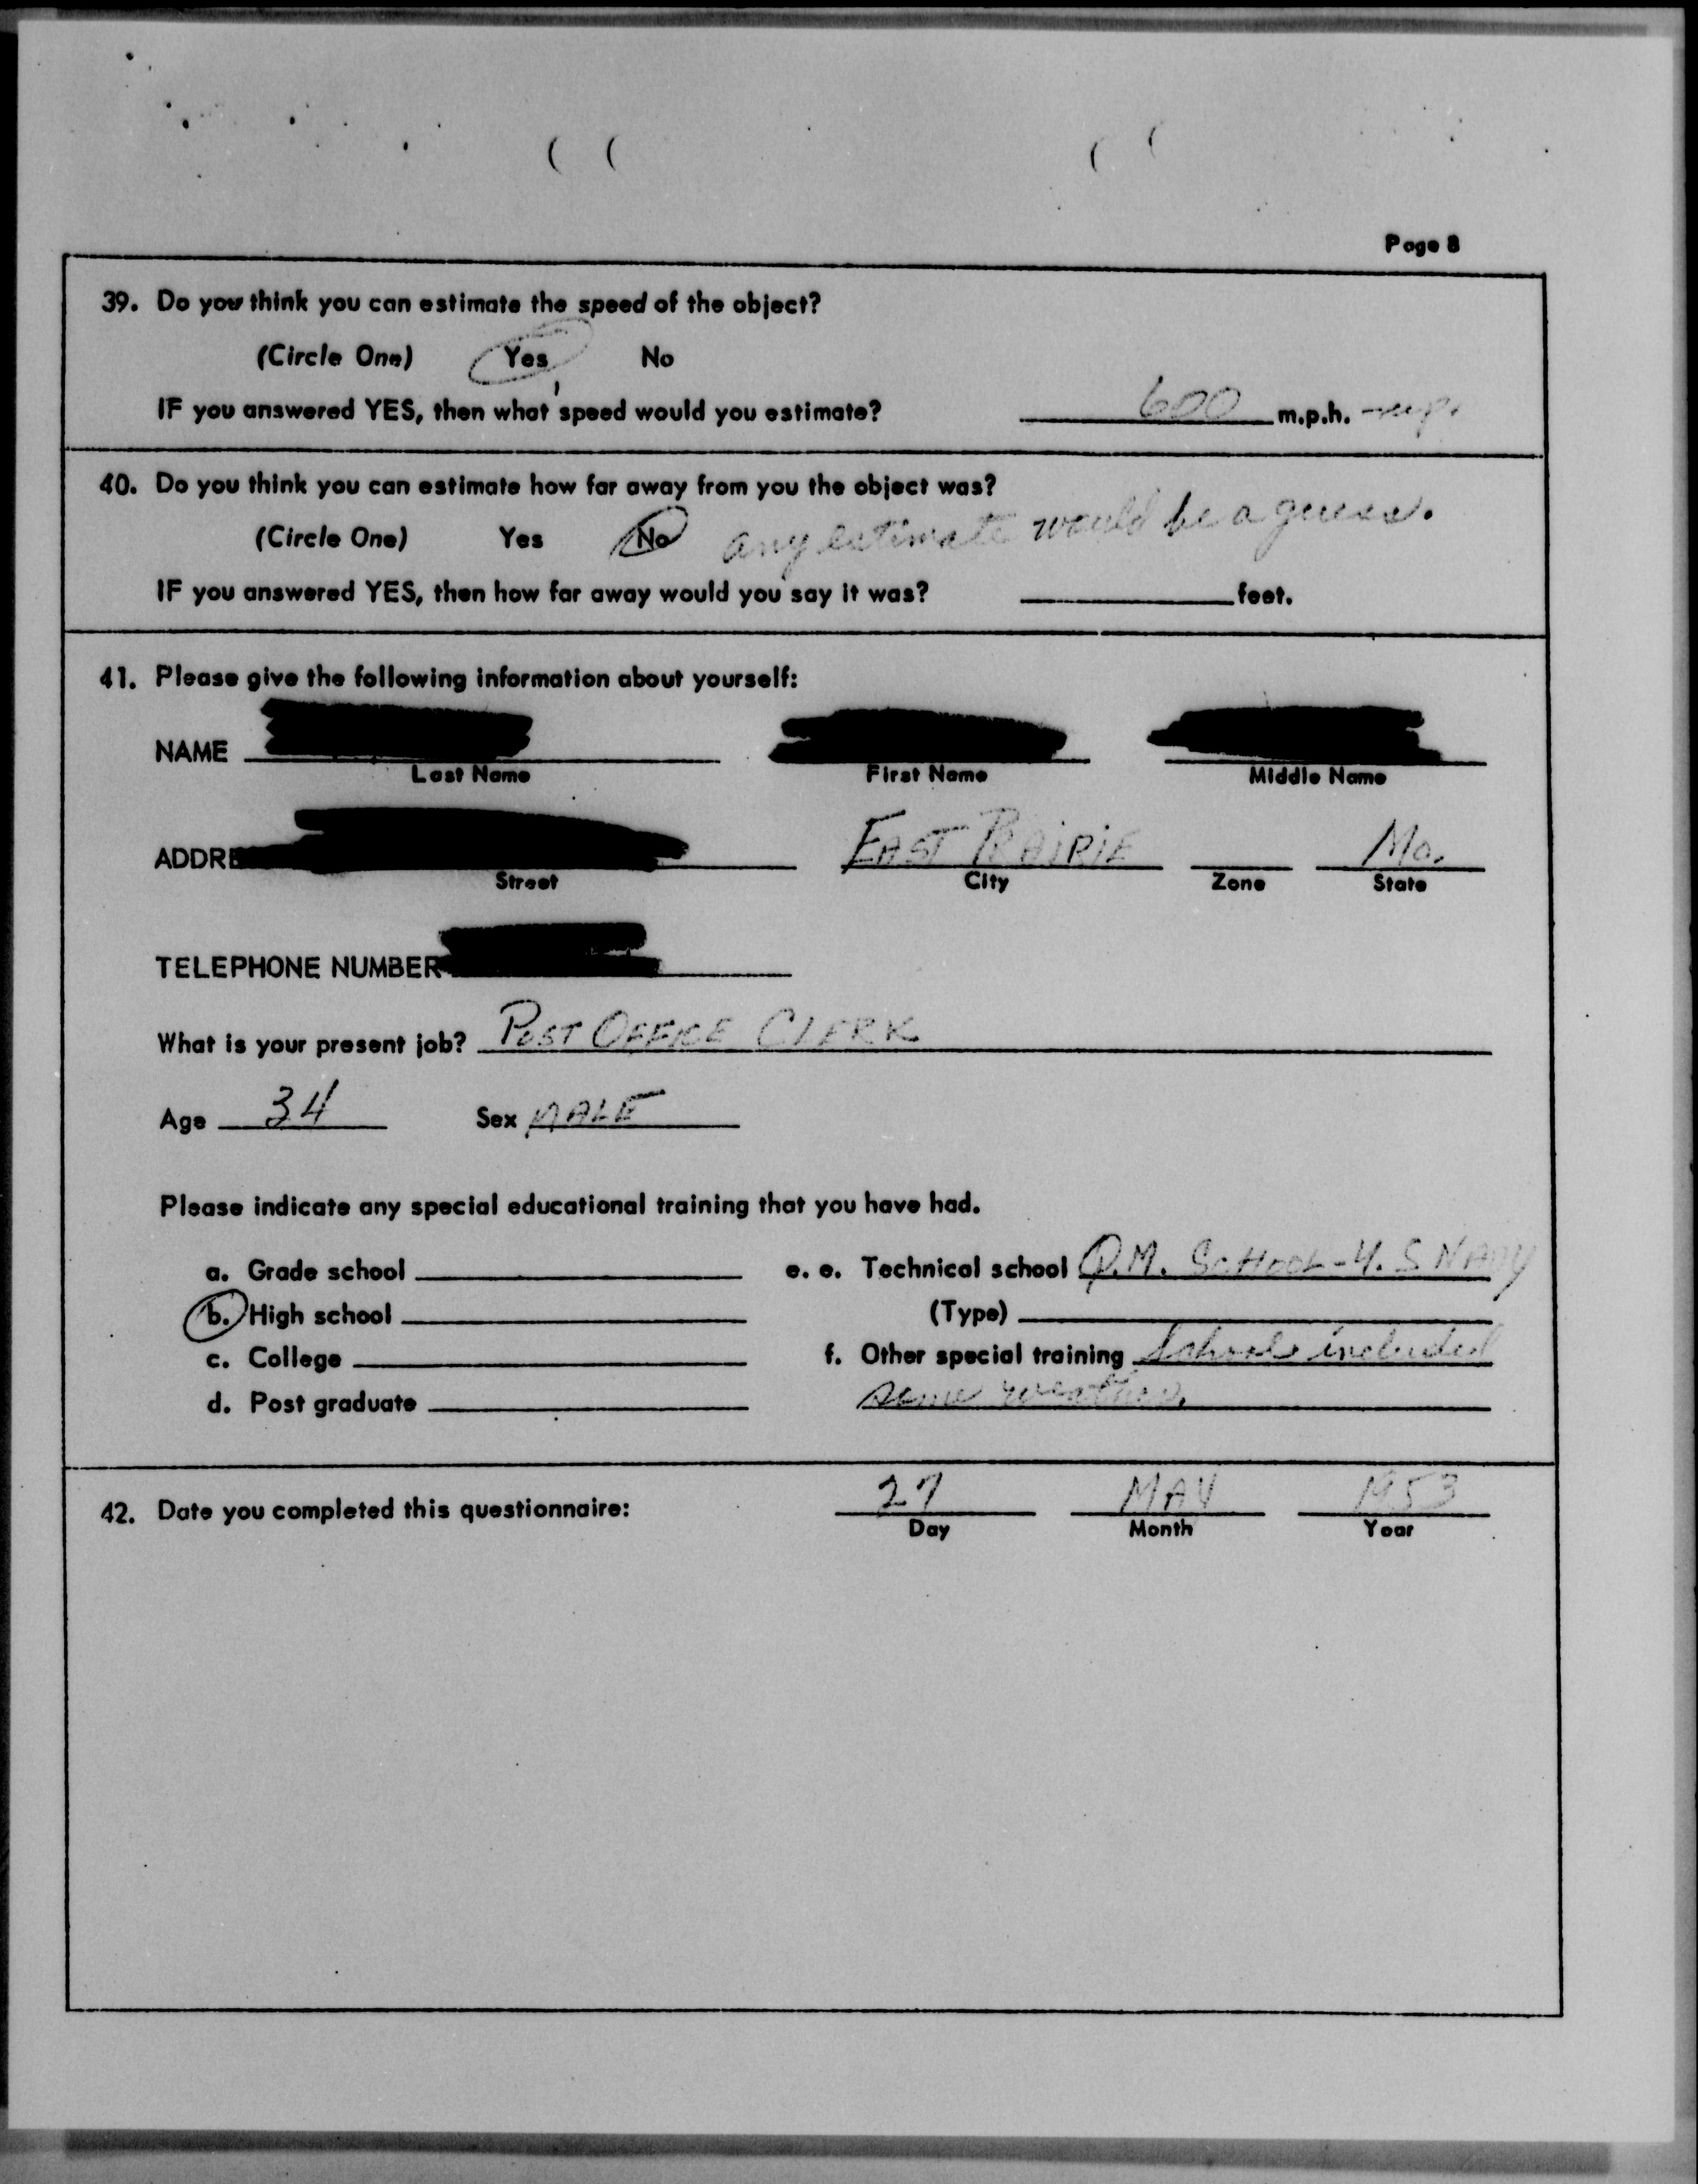 Page 8
39. Do you think you can estimate the speed of the object?
(Circle One) Yes No
IF you answered YES, then what speed would you estimate? 600 m.p.h.
40. Do you think you can estimate how far away from you the object was?
(Circle One) Yes No any estimate would be a guess.
IF you answered YES, then how far away would you say it was? feet.
41. Please give the following information about yourself:
NAME
Last Name First Name Middle Name
ADDRE EAST PRAIRIE Mo.
Street City Zone State
TELEPHONE NUMBER
What is your present job? POST OFFICE CLERK
Age 34 Sex MALE
Please indicate any special educational training that you have had.
a. Grade school e. e. Technical school Q.M. SCHOOL - U.S NAVY
b. High school (Type)
c. College f. Other special training Schools included
d. Post graduate some weather.
42. Date you completed this questionnaire: 27 MAY 1953
Day Month Year